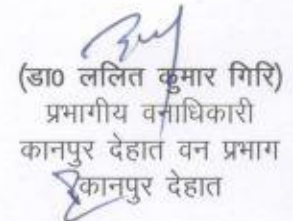 (डा0 ललित कुमार गिरि)
प्रभागीय वनाधिकारी
कानपुर देहात वन प्रभाग
कानपुर देहात